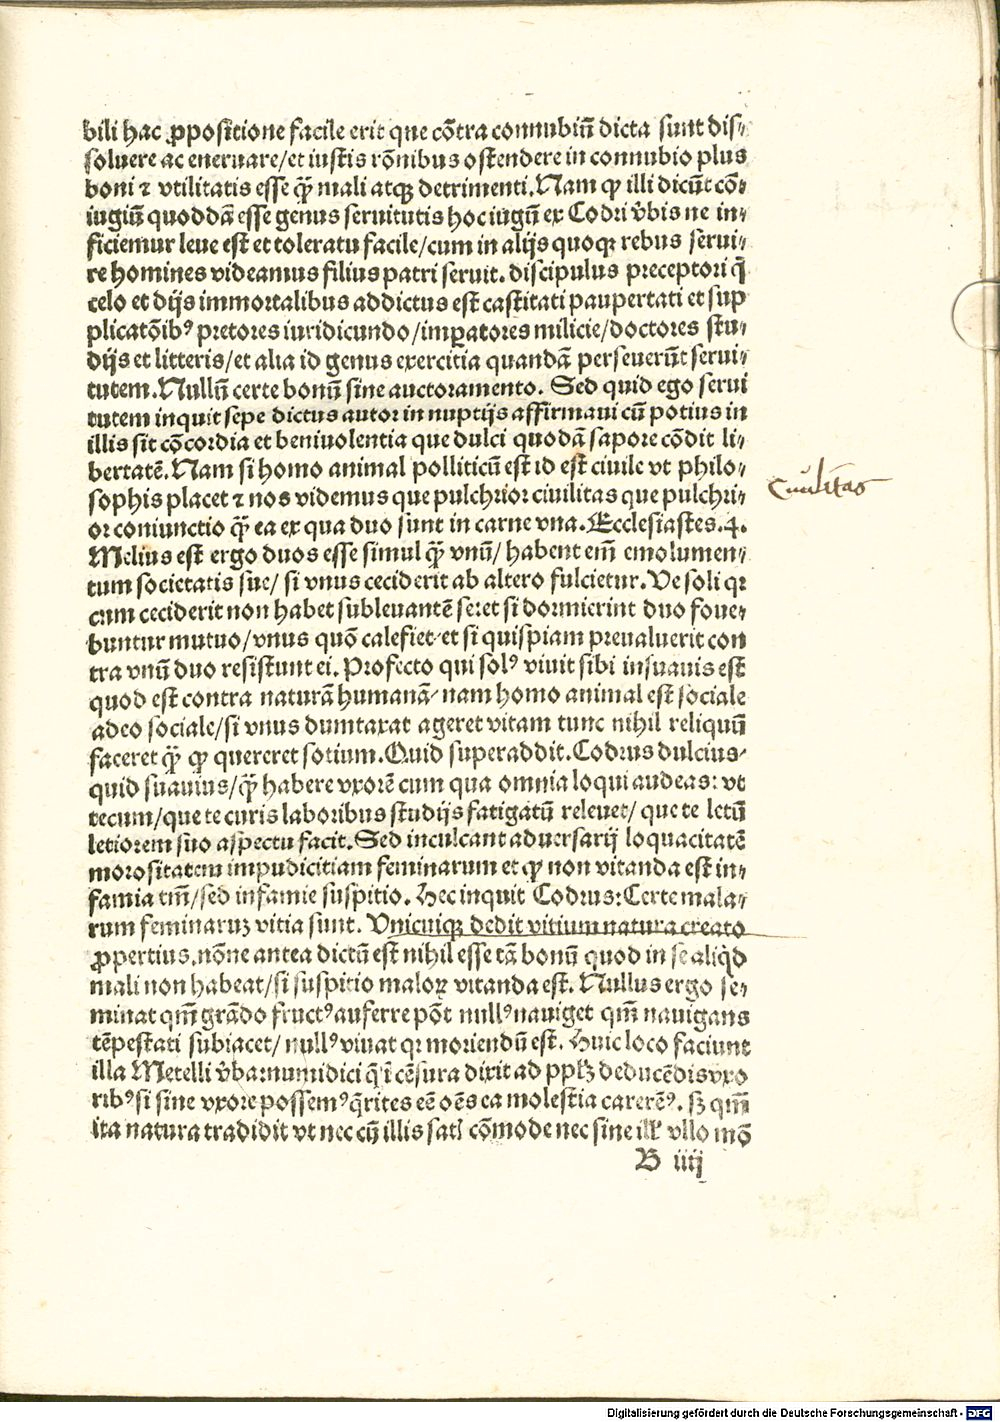 bili hac ꝓpositione facile erit que cõtra connubiũ dicta sunt dis⸗
soluere ac eneruare/et iustis rõnibus ostendere in connubio plus
boni ⁊ vtilitatis esse q̃ꝫ mali atqꝫ detrimenti. Nam ꝙ illi dicũt cõ⸗
iugiũ quoddã esse genus seruitutis hoc iugũ ex Codri v̄bis ne in⸗
ficiemur leue est et toleratu facile/cum in alijs quoqꝫ rebus serui⸗
re homines videamus filius patri seruit. discipulus preceptori q̃
celo et dijs immortalibus addictus est castitati paupertati et sup
plicatõibꝰ pretores iuridicundo/imꝑatores milicie/doctores stu⸗
dijs et litteris/et alia id genus exercitia quandã perseuerũt serui⸗
tutem. Nullũ certe bonũ sine auctoramento. Sed quid ego serui
tutem inquit sepe dictus autor in nuptijs affirmaui cũ potius in
illis sit cõcordia et beniuolentia que dulci quodã sapore cõdit li⸗
bertatẽ. Nam si homo animal polliticũ est id est ciuile vt philo⸗
sophis placet ⁊ nos videmus que pulchrior ciuilitas que pulchri⸗
or coniunctio q̃ꝫ ea ex qua duo sunt in carne vna. Ecclesiastes.4.
Melius est ergo duos esse simul q̃ꝫ vnũ/ habent em̃ emolumen⸗
tum societatis sue/ si vnus ceciderit ab altero fulcietur. Ve soli qꝛ
cum ceciderit non habet subleuantẽ se:et si dormierint duo foue⸗
buntur mutuo/vnus quõ calefiet/et si quispiam preualuerit con
tra vnũ duo resistunt ei. Profecto qui solꝰ viuit sibi insuauis est
quod est contra naturã humanã/ nam homo animal est sociale
adeo sociale/si vnus dumtaxat ageret vitam tunc nihil reliquũ
faceret q̃ꝫ ꝙ quereret sotium. Quid superaddit. Codrus dulcius/
quid suauius/q̃ꝫ habere vxorẽ cum qua omnia loqui audeas: vt
tecum/que te curis laboribus studijs fatigatũ releuet/ que te letũ
letiorem suo aspectu facit. Sed inculcant aduersarij loquacitatẽ
morositatem impudicitiam feminarum et ꝙ non vitanda est in⸗
famia tm̃/sed infamie suspitio. Hec inquit Codrus: Certe mala⸗
rum feminaruꝫ vitia sunt. Unicuiqꝫ dedit vitium natura creato
ꝓpertius. nõne antea dictũ est nihil esse tã bonũ quod in se aliq̇d
mali non habeat/si suspitio maloꝝ vitanda est. Nullus ergo se⸗
minat qm̃ grãdo fructꝰ auferre põt nullꝰ nauiget qm̃ nauigans
tẽpestati subiacet/ nullꝰ viuat qꝛ moriendũ est. Huic loco faciunt
illa Metelli v̄ba:numidici q̃ ĩ cẽsura dixit ad ppłꝫ de ducẽdis vxo
ribꝰ si sine vxore possemꝰ q̃rites eẽ oẽs ea molestia carerẽꝰ. sꝫ qm̃
ita natura tradidit vt nec cũ illis satꝭ cõmode nec sine illꝭ vllo mõ
B iiij
Ciuilitas
Digitalisierung gefördert durch die Deutsche Forschungsgemeinschaft - DFG